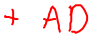 + AD